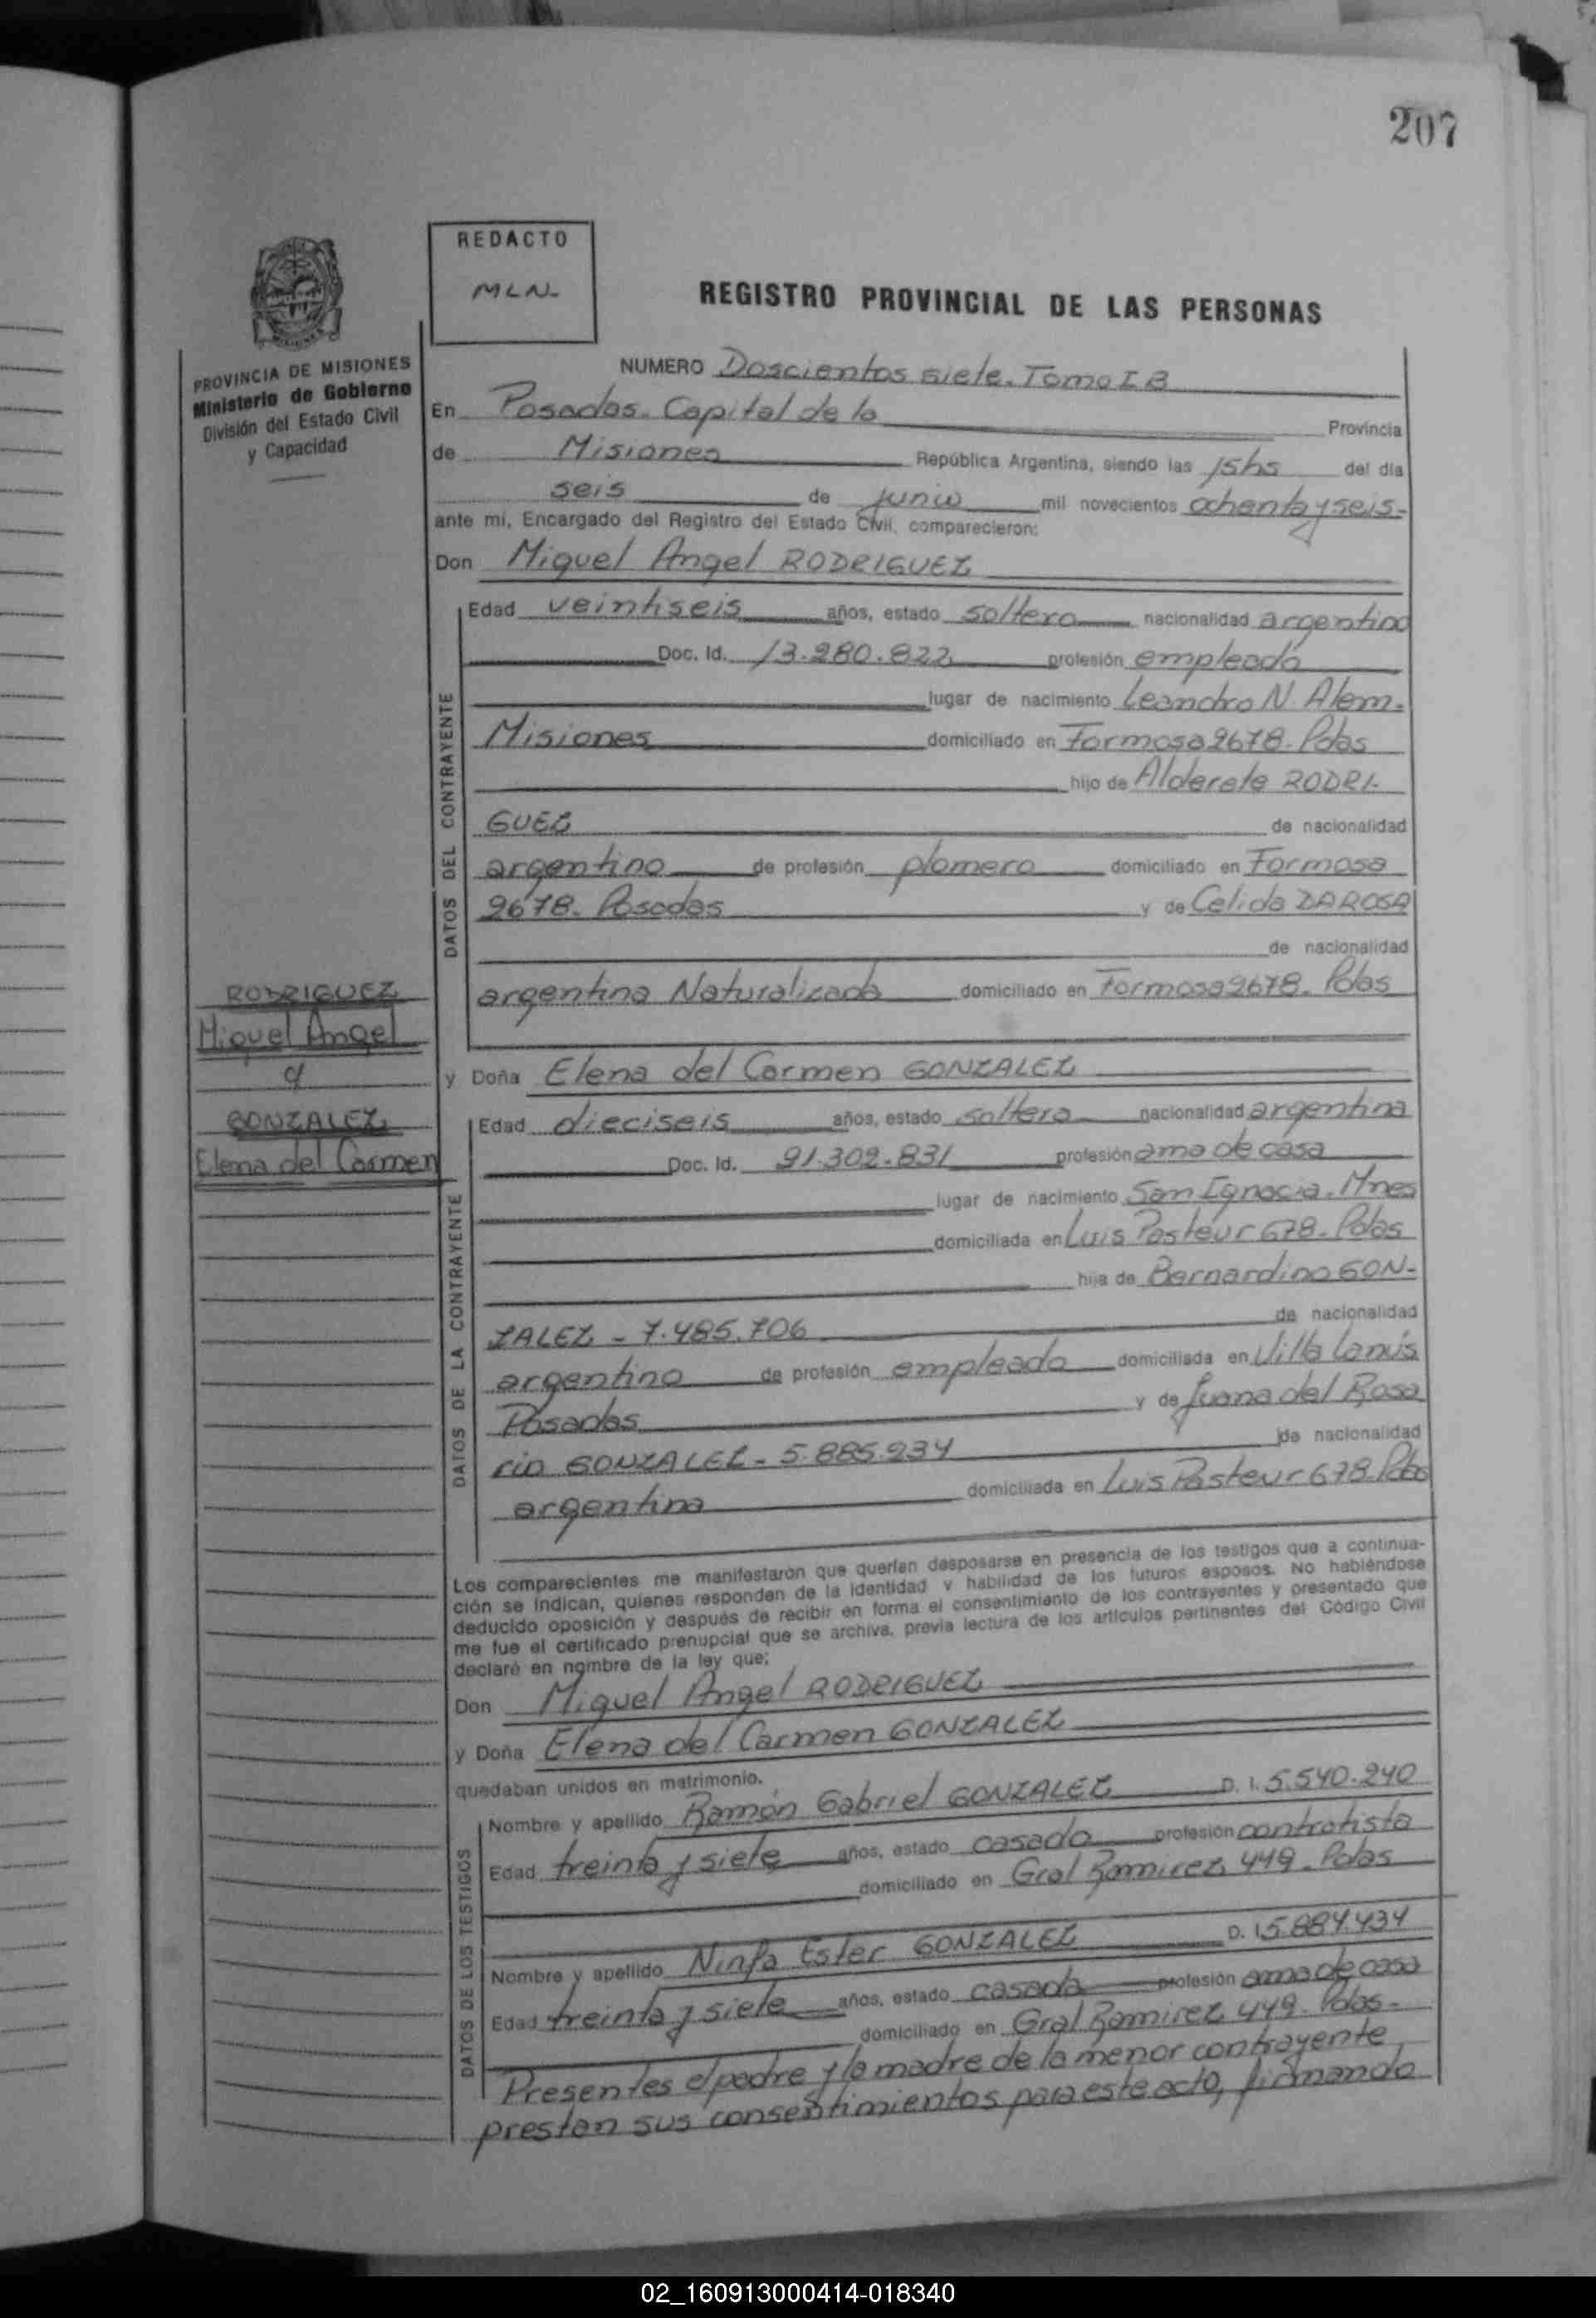 207
REDACTO
MLN-
REGISTRO PROVINCIAL DE LAS PERSONAS
PROVINCIA DE MISIONES
Ministerio de Gobierno
División del Estado Civil
y Capacidad
NUMERO Doscientos siete. Tomo I B
En Posadas. Capital de la Provincia
de Misiones República Argentina, siendo las 15hs del día
seis de junio mil novecientos ochenta y seis-
ante mí, Encargado del Registro del Estado Civil, comparecieron:
Don Miguel Angel RODRIGUEZ
DATOS DEL CONTRAYENTE
Edad veintiseis años, estado soltero nacionalidad argentino
Doc. Id. 13.280.822 profesión empleado
lugar de nacimiento Leandro N. Alem.
Misiones domiciliado en Formosa 2678. Pdas
hijo de Alderete RODRI-
GUEZ de nacionalidad
argentino de profesión plomero domiciliado en Formosa
2678. Posadas y de Celida DAROSA
de nacionalidad
argentina Naturalizada domiciliado en Formosa 2678. Pdas
RODRIGUEZ
Miguel Angel
c/
GONZALEZ
Elena del Carmen
y Doña Elena del Carmen GONZALEZ
DATOS DE LA CONTRAYENTE
Edad dieciseis años, estado soltera nacionalidad argentina
Doc. Id. 91.302.831 profesión ama de casa
lugar de nacimiento San Ignacio. Mnes
domiciliada en Luis Pasteur 678. Pdas
hija de Bernardino GON-
ZALEZ - 7.485.706 de nacionalidad
argentino de profesión empleado domiciliada en Villa Lanús
Posadas y de Juana del Rosa
rio GONZALEZ - 5.885.234 de nacionalidad
argentina domiciliada en Luis Pasteur 678. Pdas
Los comparecientes me manifestaron que querían desposarse en presencia de los testigos que a continua-
ción se indican, quienes responden de la identidad y habilidad de los futuros esposos. No habiéndose
deducido oposición y después de recibir en forma el consentimiento de los contrayentes y presentado que
me fue el certificado prenupcial que se archiva, previa lectura de los artículos pertinentes del Código Civil
declaré en nombre de la ley que:
Don Miguel Angel RODRIGUEZ
y Doña Elena del Carmen GONZALEZ
quedaban unidos en matrimonio.
DATOS DE LOS TESTIGOS
Nombre y apellido Ramón Gabriel GONZALEZ D. I. 5.540.240
Edad treinta y siete años, estado casado profesión contratista
domiciliado en Gral Ramirez 449. Pdas
Nombre y apellido Ninfa Ester GONZALEZ D. I 5.884.434
Edad treinta y siete años, estado casada profesión ama de casa
domiciliado en Gral Ramirez 449. Pdas-
Presentes el padre y la madre de la menor contrayente
prestan sus consentimientos para este acto, firmando
02_160913000414-018340